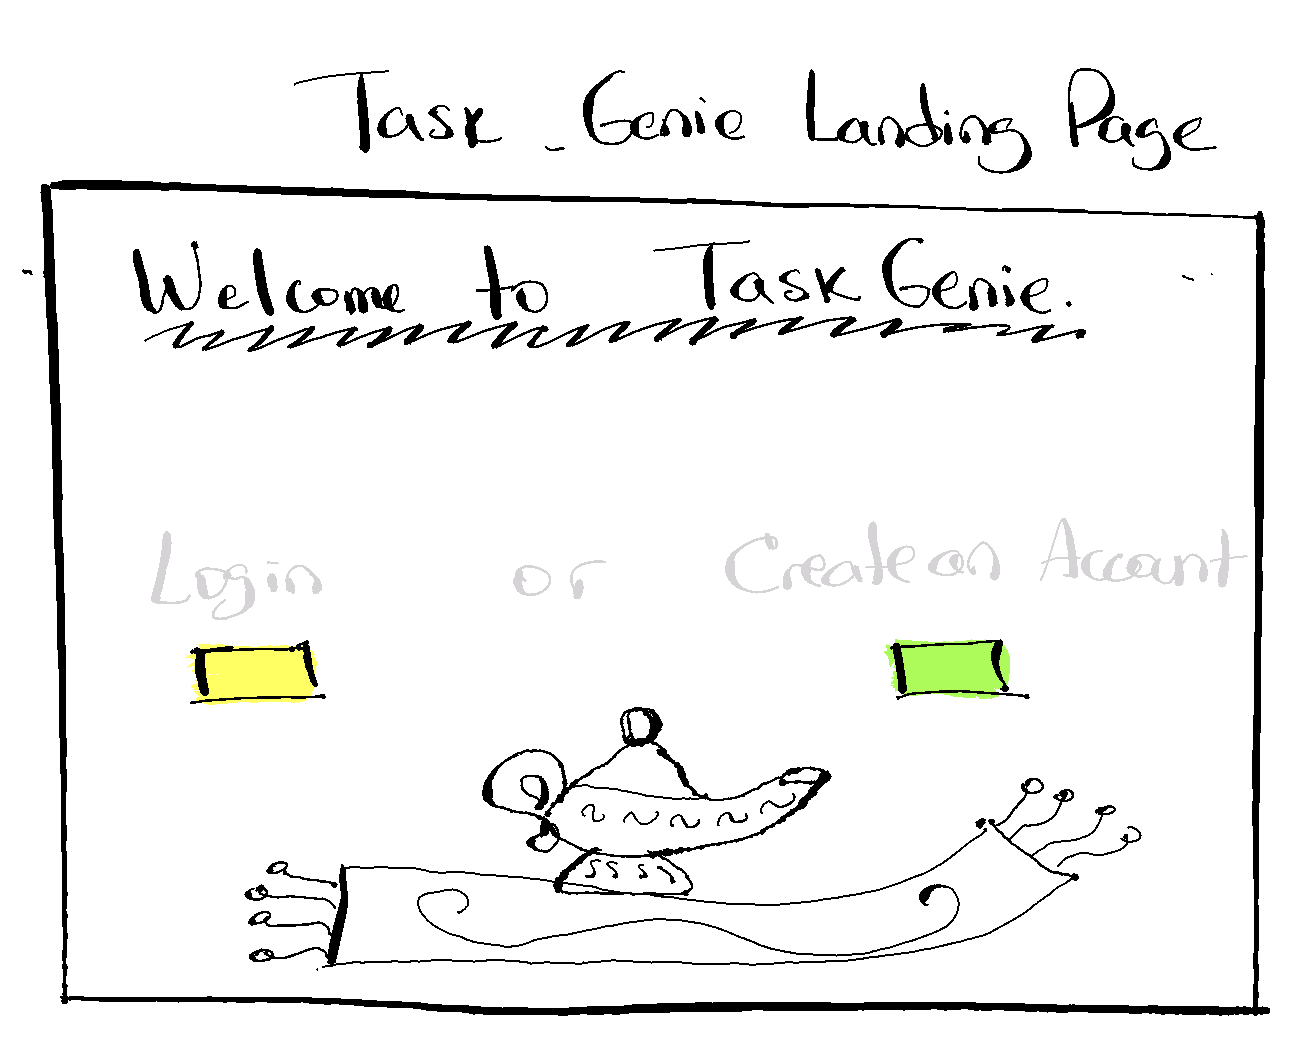 Task - Genie Landing Page
Welcome to Task Genie.
Login or Create an Account